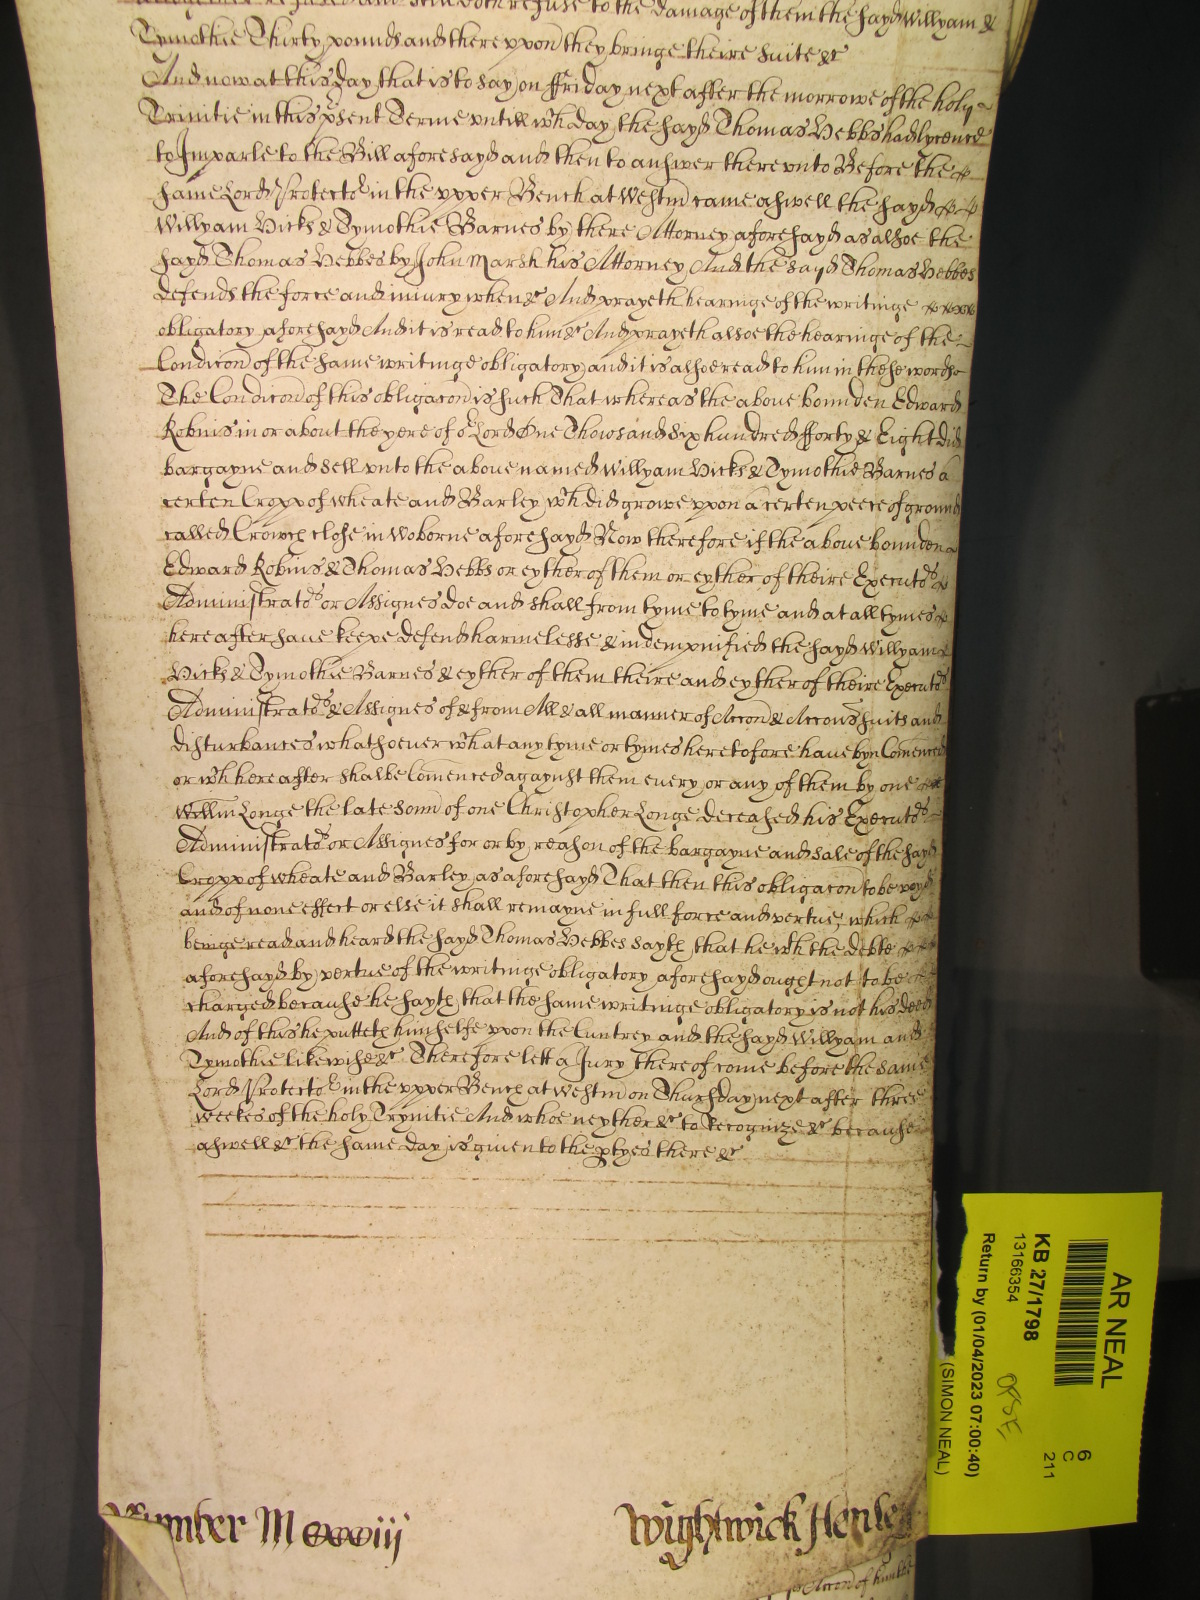 refused and still doth refuse to the damage of them the sayd Willyam &
Tymothie Thirty pounds and there vppon they bringe theire suite &c
And now at this day that is to say on ffriday next after the morrowe of the holy
Trinitie in this psent Terme vntill wch day the sayd Thomas Hebbs had lycence
to Imparle to the Bill aforesayd and then to answer there vnto Before the
same Lord Protector in the vpper Bench at Westm came aswell the sayd
Willyam Hicks & Tymothie Barnes by there Attorney aforesayd as alsoe the
sayd Thomas Hebbes by John Marsh his Attorney And the sayd Thomas Hebbes
defends the force and iniury when &c And prayeth hearinge of the writinge
obligatory aforesayd And it is read to him &c And prayeth alsoe the hearinge of the
Condicon of the same writinge obligatory and it is alsoe read to him in these words
The Condicon of this obligacon is such That whereas the aboue bounden Edward
Robins in or about the yere of or Lord One Thowsand six hundred fforty & Eight did
bargayne and sell vnto the aboue named Willyam Hicks & Tymothie Barnes a
certen Cropp of wheate and Barley wch did growe vppon a certen peece of ground
called Crowch close in Woborne aforesayd Now therefore if the aboue bounden
Edward Robins & Thomas Hebbs or eyther of them or eyther of theire Executors
Administrators or Assignes doe and shall from tyme to tyme and at all tymes
hereafter saue keepe defend harmelesse & indempnified the sayd Willyam
Hicks & Tymothie Barnes & eyther of them theire and eyther of theire Executors
Administrators & Assignes of & from All & all manner of Accon & Accons suits and
disturbances whatsoeuer wch at any tyme or tymes heretofore haue byn Comenced
or wch hereafter shalbe Comenced agaynst them euery or any of them by one
Willm Longe the late sonn of one Christopher Longe deceased his Executors
Administrators or Assignes for or by reason of the bargayne and sale of the sayd
Cropp of wheate and Barley as aforesayd That then this obligacon to be voyd
and of none effect or else it shall remayne in full force and vertue, which
beinge read and heard the sayd Thomas Hebbes sayth that he wth the debte
aforesayd by vertue of the writinge obligatory aforesayd ought not to be
charged because he sayth that the same writinge obligatory is not his deed
And of this he putteth himselfe vppon the Cuntrey and the sayd Willyam and
Tymothie likewise &c Therefore lett a Jury thereof come before the same
Lord Protector in the vpper Bench at Westm on Thursday next after three
weekes of the holy Trynitie And whoe neyther &c to Recognize &c because
aswell &c the same day is giuen to the ptyes there &c
Wightwick
AR NEAL
6
C
211
KB 27/1798
13166354
Return by (01/04/2023 07:00:40)
(SIMON NEAL)